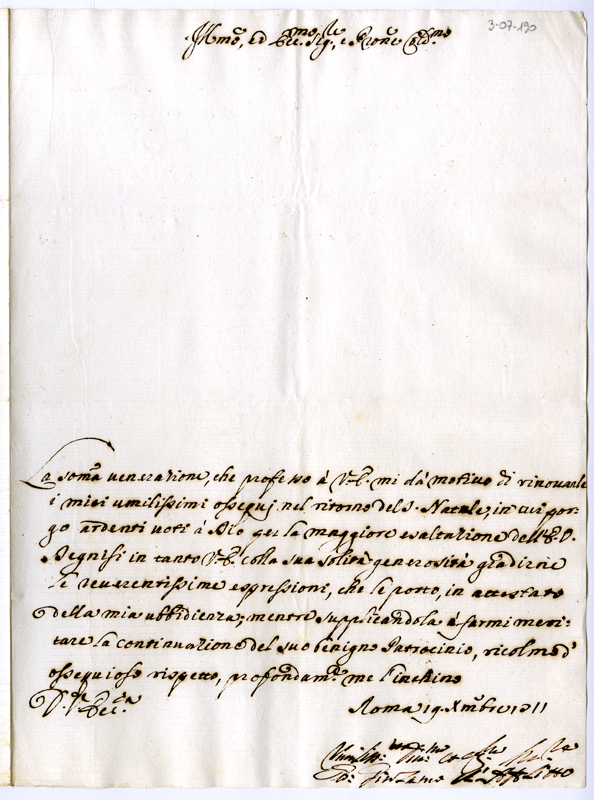 3-07-190
Illmo, ed Ecc.mo Sig.re, e Prone Col.mo
La soma venerazione, che professo à V.E. mi dà motivo di rinovarle
i miei umilissimi ossequj nel ritorno del S. Natale, in cui por-
go ardenti voti à Dio per la maggiore esaltazione dell'E.V.
Degnisi in tanto V.E. colla sua solita generosità gradirne
le reverentissime espressioni, che le porto, in attestato
della mia ubbidienza; mentre supplicandola à farmi meri-
tare la continuazione del suo benigno Patrocinio, ricolmo d'
ossequioso rispetto, profondam.te me l'inchino
V.ra Ecc.a
Roma 19 Xmbre 1711
Umiliss.mo